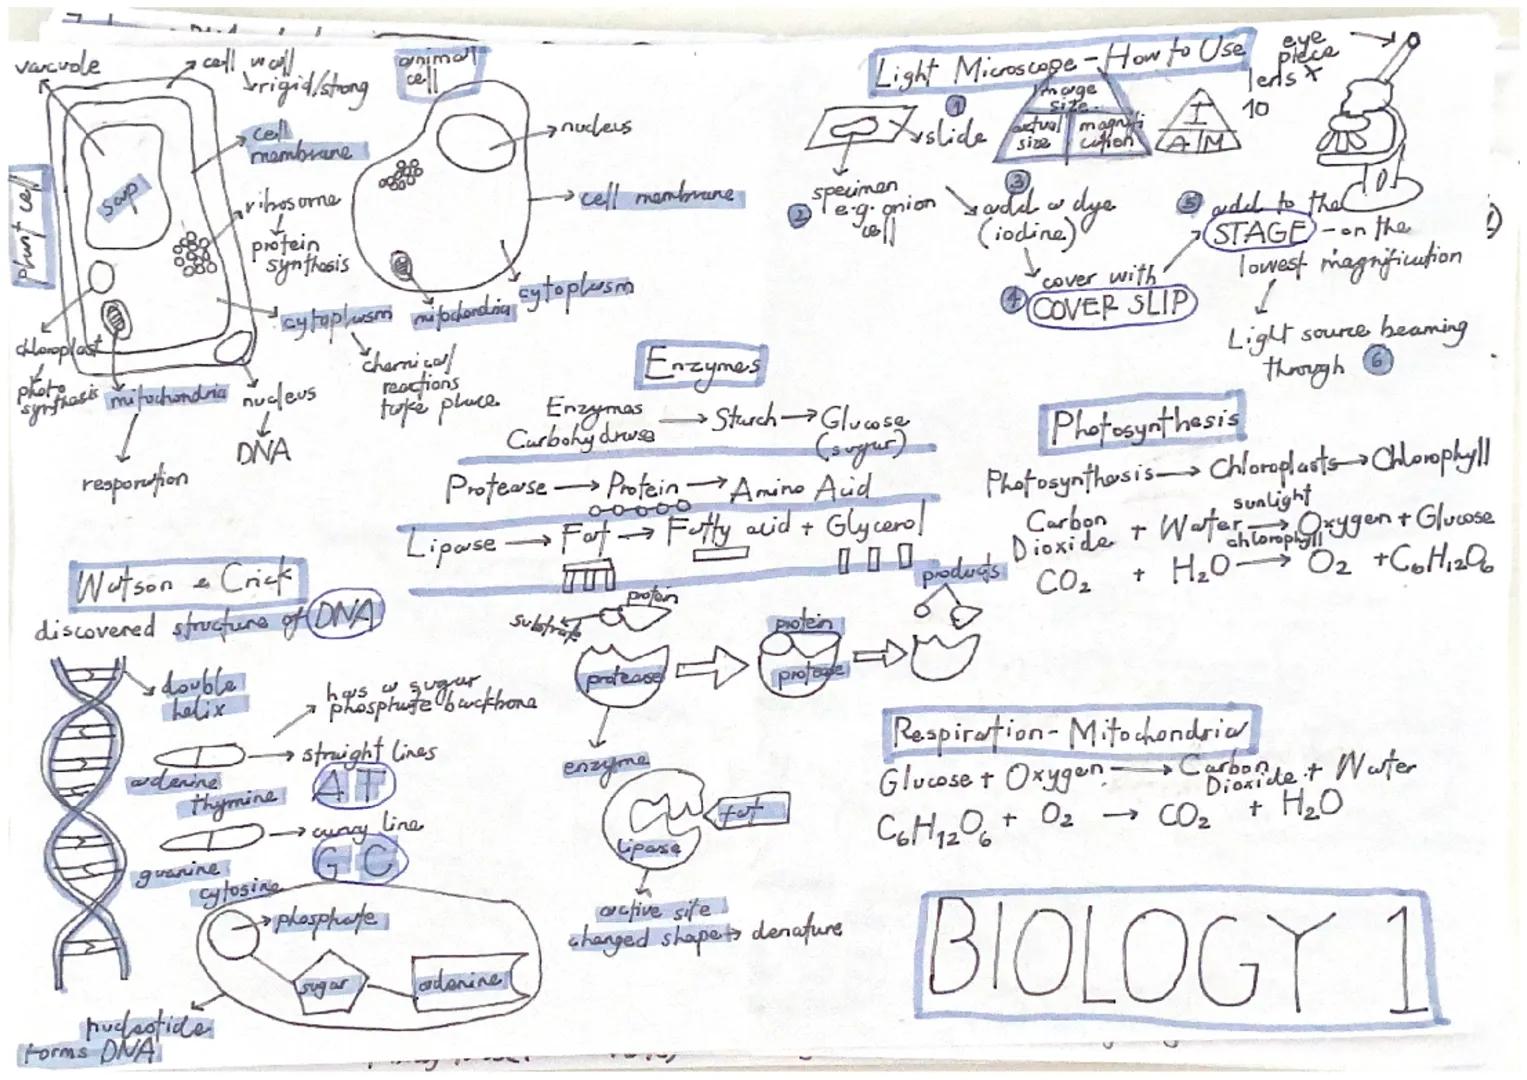 vacuole
cell wall
rigid/strong
cell
membrane
ribosome
protein
synthesis
plant cell
sap
cytoplasm
chemical
reactions
take place
chloroplast
photo
synthesis
mitochondria
resporation
nucleus
DNA
animal
cell
nucleus
cell membrane
cytoplasm
mitochondria
Light Microscope - How to Use
eye
piece
lens x
10
1
slide
Image
size
actual
size
magnifi
cation
I
A M
2
specimen
e.g. onion
cell
3
add a dye
(iodine)
4
cover with
COVER SLIP
5
add to the
STAGE - on the
lowest magnification
Light source beaming
through 6
Enzymes
Enzymes
Carbohydrase → Starch → Glucose
(sugar)
Protease → Protein → Amino Acid
Lipase → Fat → Fatty acid + Glycerol
substrate
protein
protease
protein
protease
products
enzyme
fat
lipase
active site
changed shape → denature
Photosynthesis
Photosynthesis → Chloroplasts → Chlorophyll
sunlight
Carbon
Dioxide + Water → Oxygen + Glucose
chlorophyll
CO₂ + H₂O → O₂ + C₆H₁₂O₆
Watson & Crick
discovered structure of DNA
double
helix
has a sugar
phosphate backbone
straight lines
adenine
thymine
A T
curvy line
guanine
cytosine
G C
phosphate
sugar
adenine
nucleotide
forms DNA
Respiration - Mitochondria
Glucose + Oxygen → Carbon
Dioxide + Water
C₆H₁₂O₆ + O₂ → CO₂ + H₂O
BIOLOGY 1